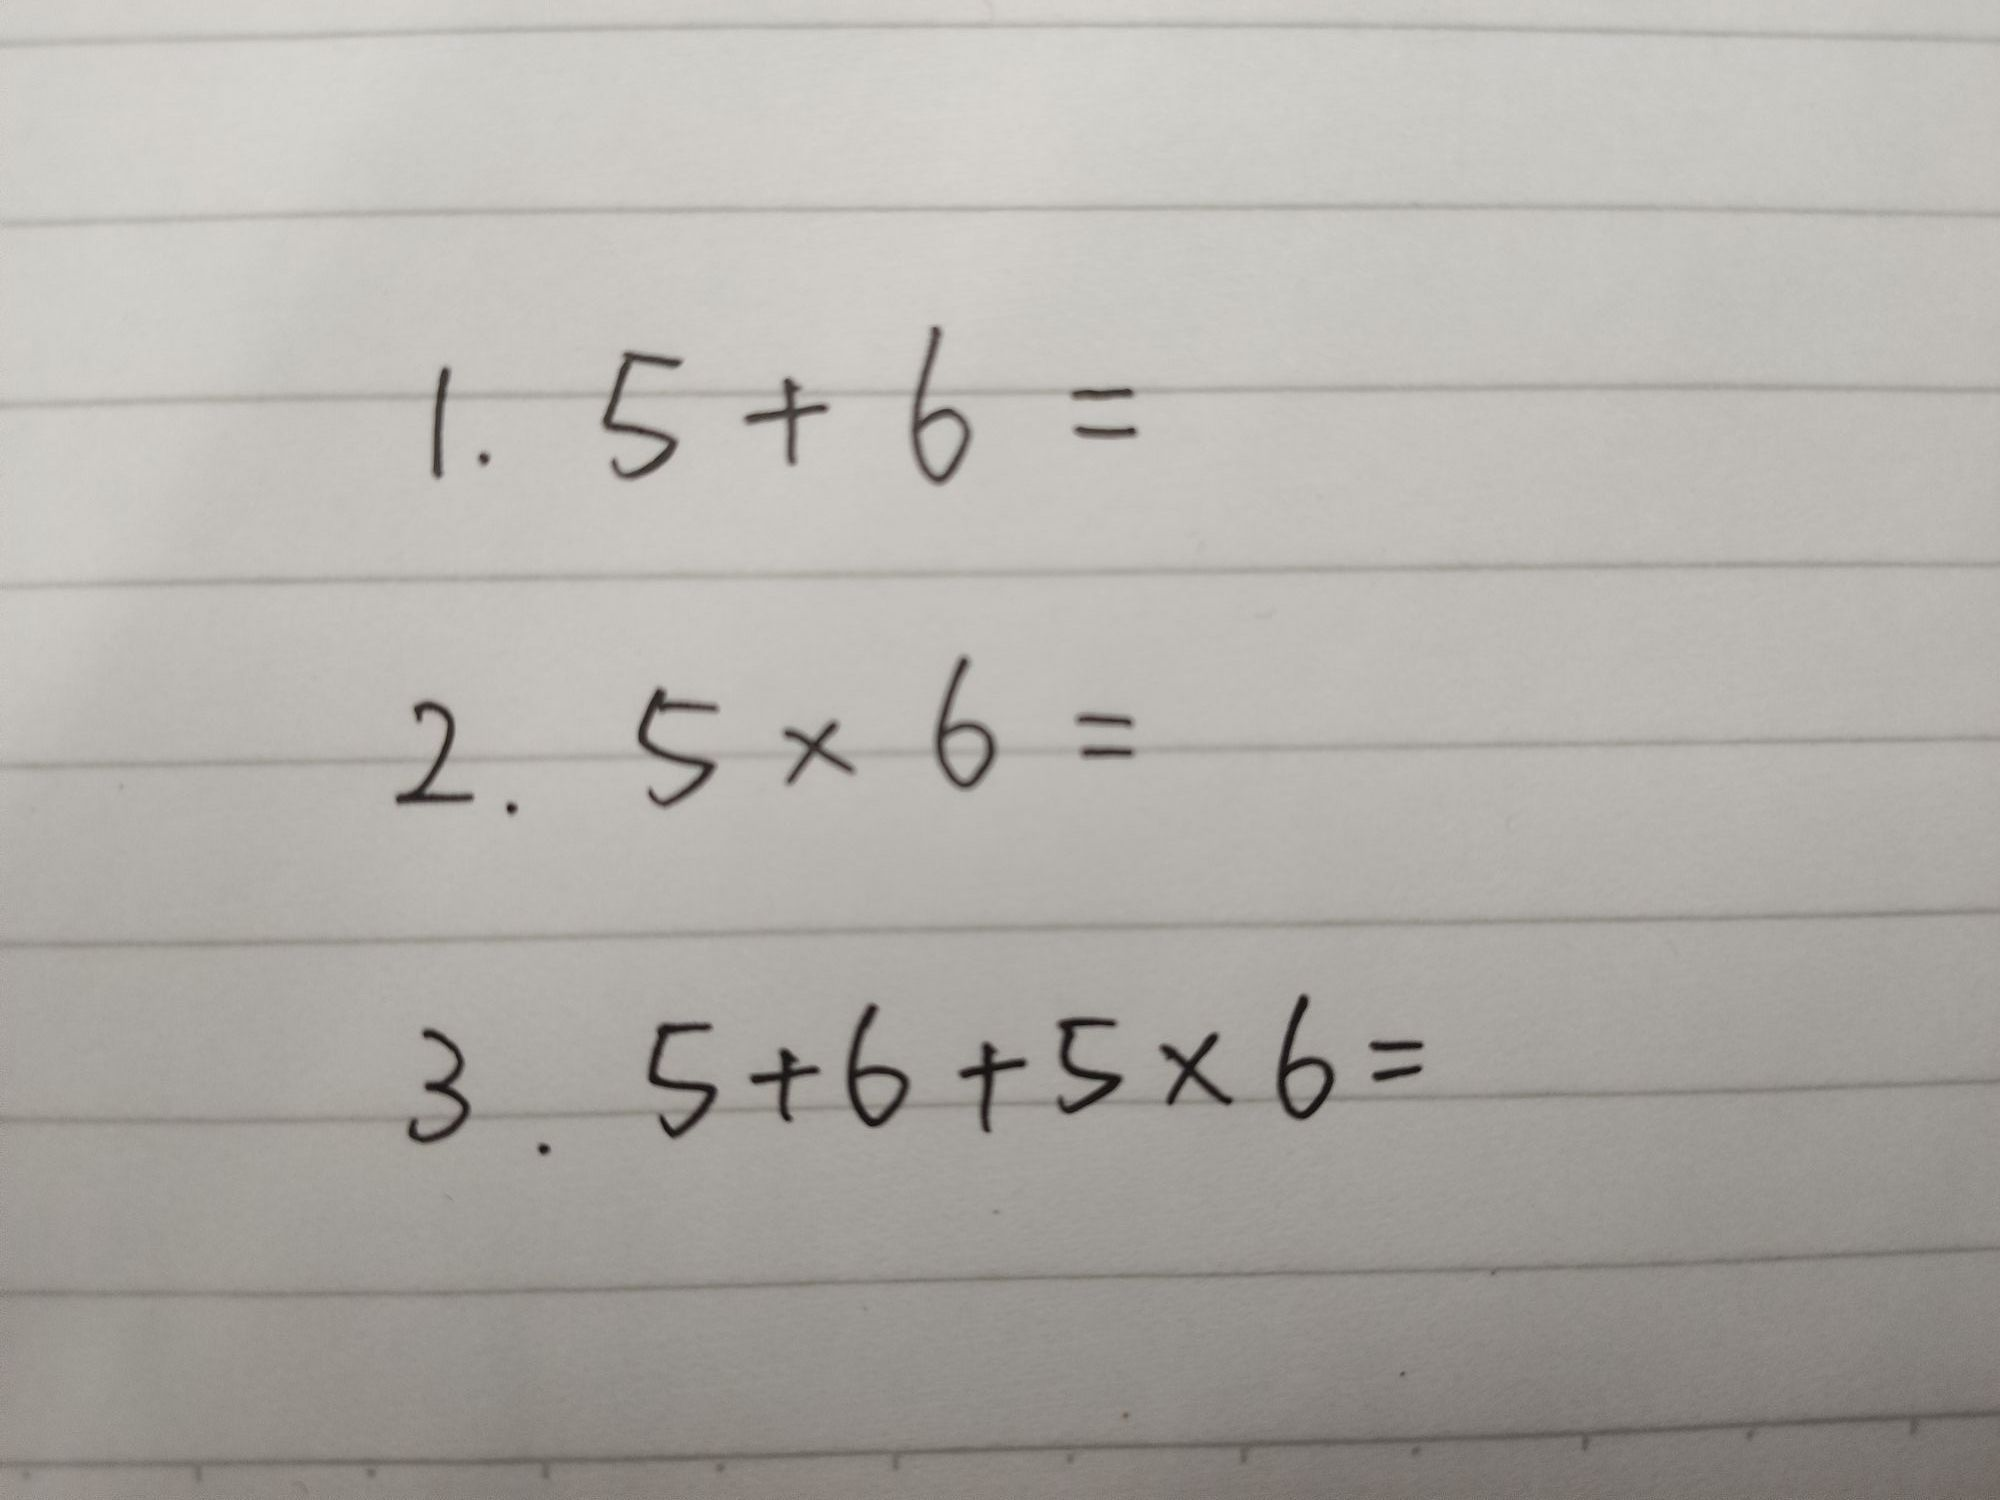 1. 5 + 6 =
2. 5 × 6 =
3. 5 + 6 + 5 × 6 =